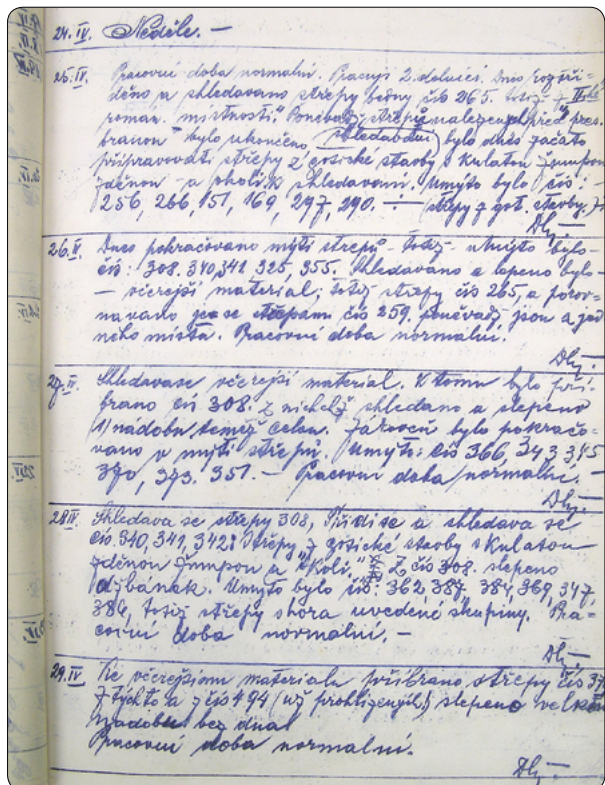 24.IV. Neděle. —
25.IV. Pracovní doba normalní. Pracují 2 dělníci. Dnes rozšíři-
děno a shledavano střepy bedny čís 265. totiž z II.
roman. místnosti." Poněvadž střepů nalezených před pres.
branou" bylo ukončeno shledavání, bylo dnes začato
připravovati střepy z gotické stavby s kulatou žumpou
zděnou - a okolí k shledavaní. Umýto bylo čís: -
256, 266, 151, 169, 297, 290. — (střepy z got. stavby.
Dlý.
26.IV. Dnes pokračovano mýti střepů - totiž - umýto bylo -
čís: 308. 340, 341 325, 355. Shledavano a lepeno bylo -
— včerejší material; totiž střepy čís 265, a porov-
navano se střepami čís 259 poněvadž jsou z jed
noho místa. Pracovní doba normalní.
Dlý.
27.IV. Shledavase včerejší material. K tomu bylo při
brano čís 308. z nichž shledano a slepeno
(1) nadobu téměř celou. Zároveň bylo pokračo-
vano v mytí střepů. Umyto: čís 366, 343, 345
370, 373. 351. — Pracovní doba normalní. —
Dlý.
28IV. Shledava se střepy 308, Třídí se a shledava se
čís. 340, 341, 342: Střepy z gotické stavby s kulatou
zděnou žumpou a okolí." Z čís 308. slepeno
džbánek. Umyto bylo čís: 362, 387. 384, 369, 347,
386, totiž střepy shora uvedené skupiny. Pra-
covní doba normalní. —
Dlý.
29.IV Ke včerejšímu materialu přibrano střepy čís 37
Z těchto a z čís 494 (už prohlížených) slepeno velkou
nadobu bez dna!
Pracovní doba normalní.
Dlý.